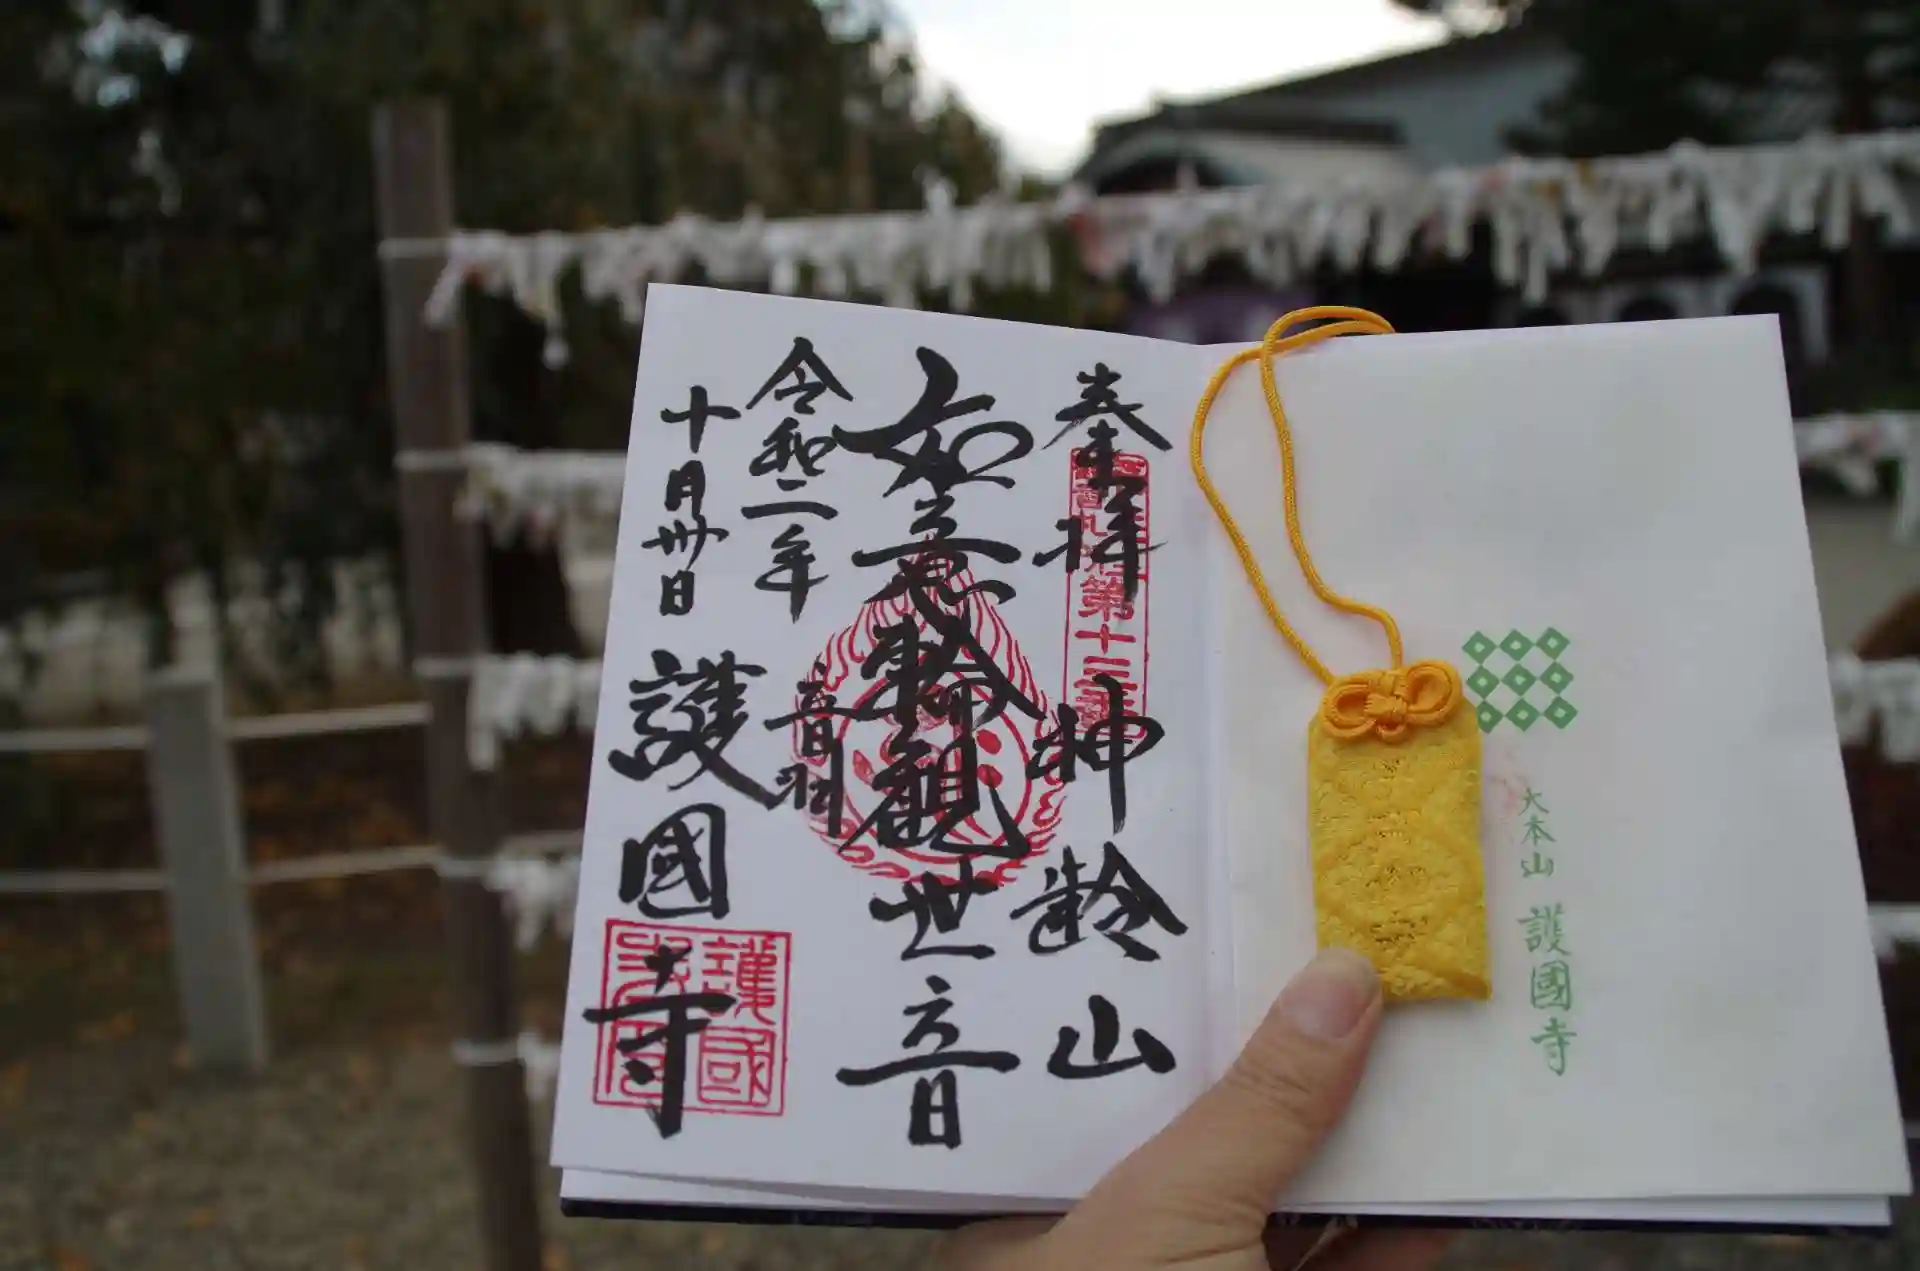 奉拝
神齢山
如意輪観世音
令和二年
音羽
十月卅日
護國寺
第十三番
護國
大本山 護國寺